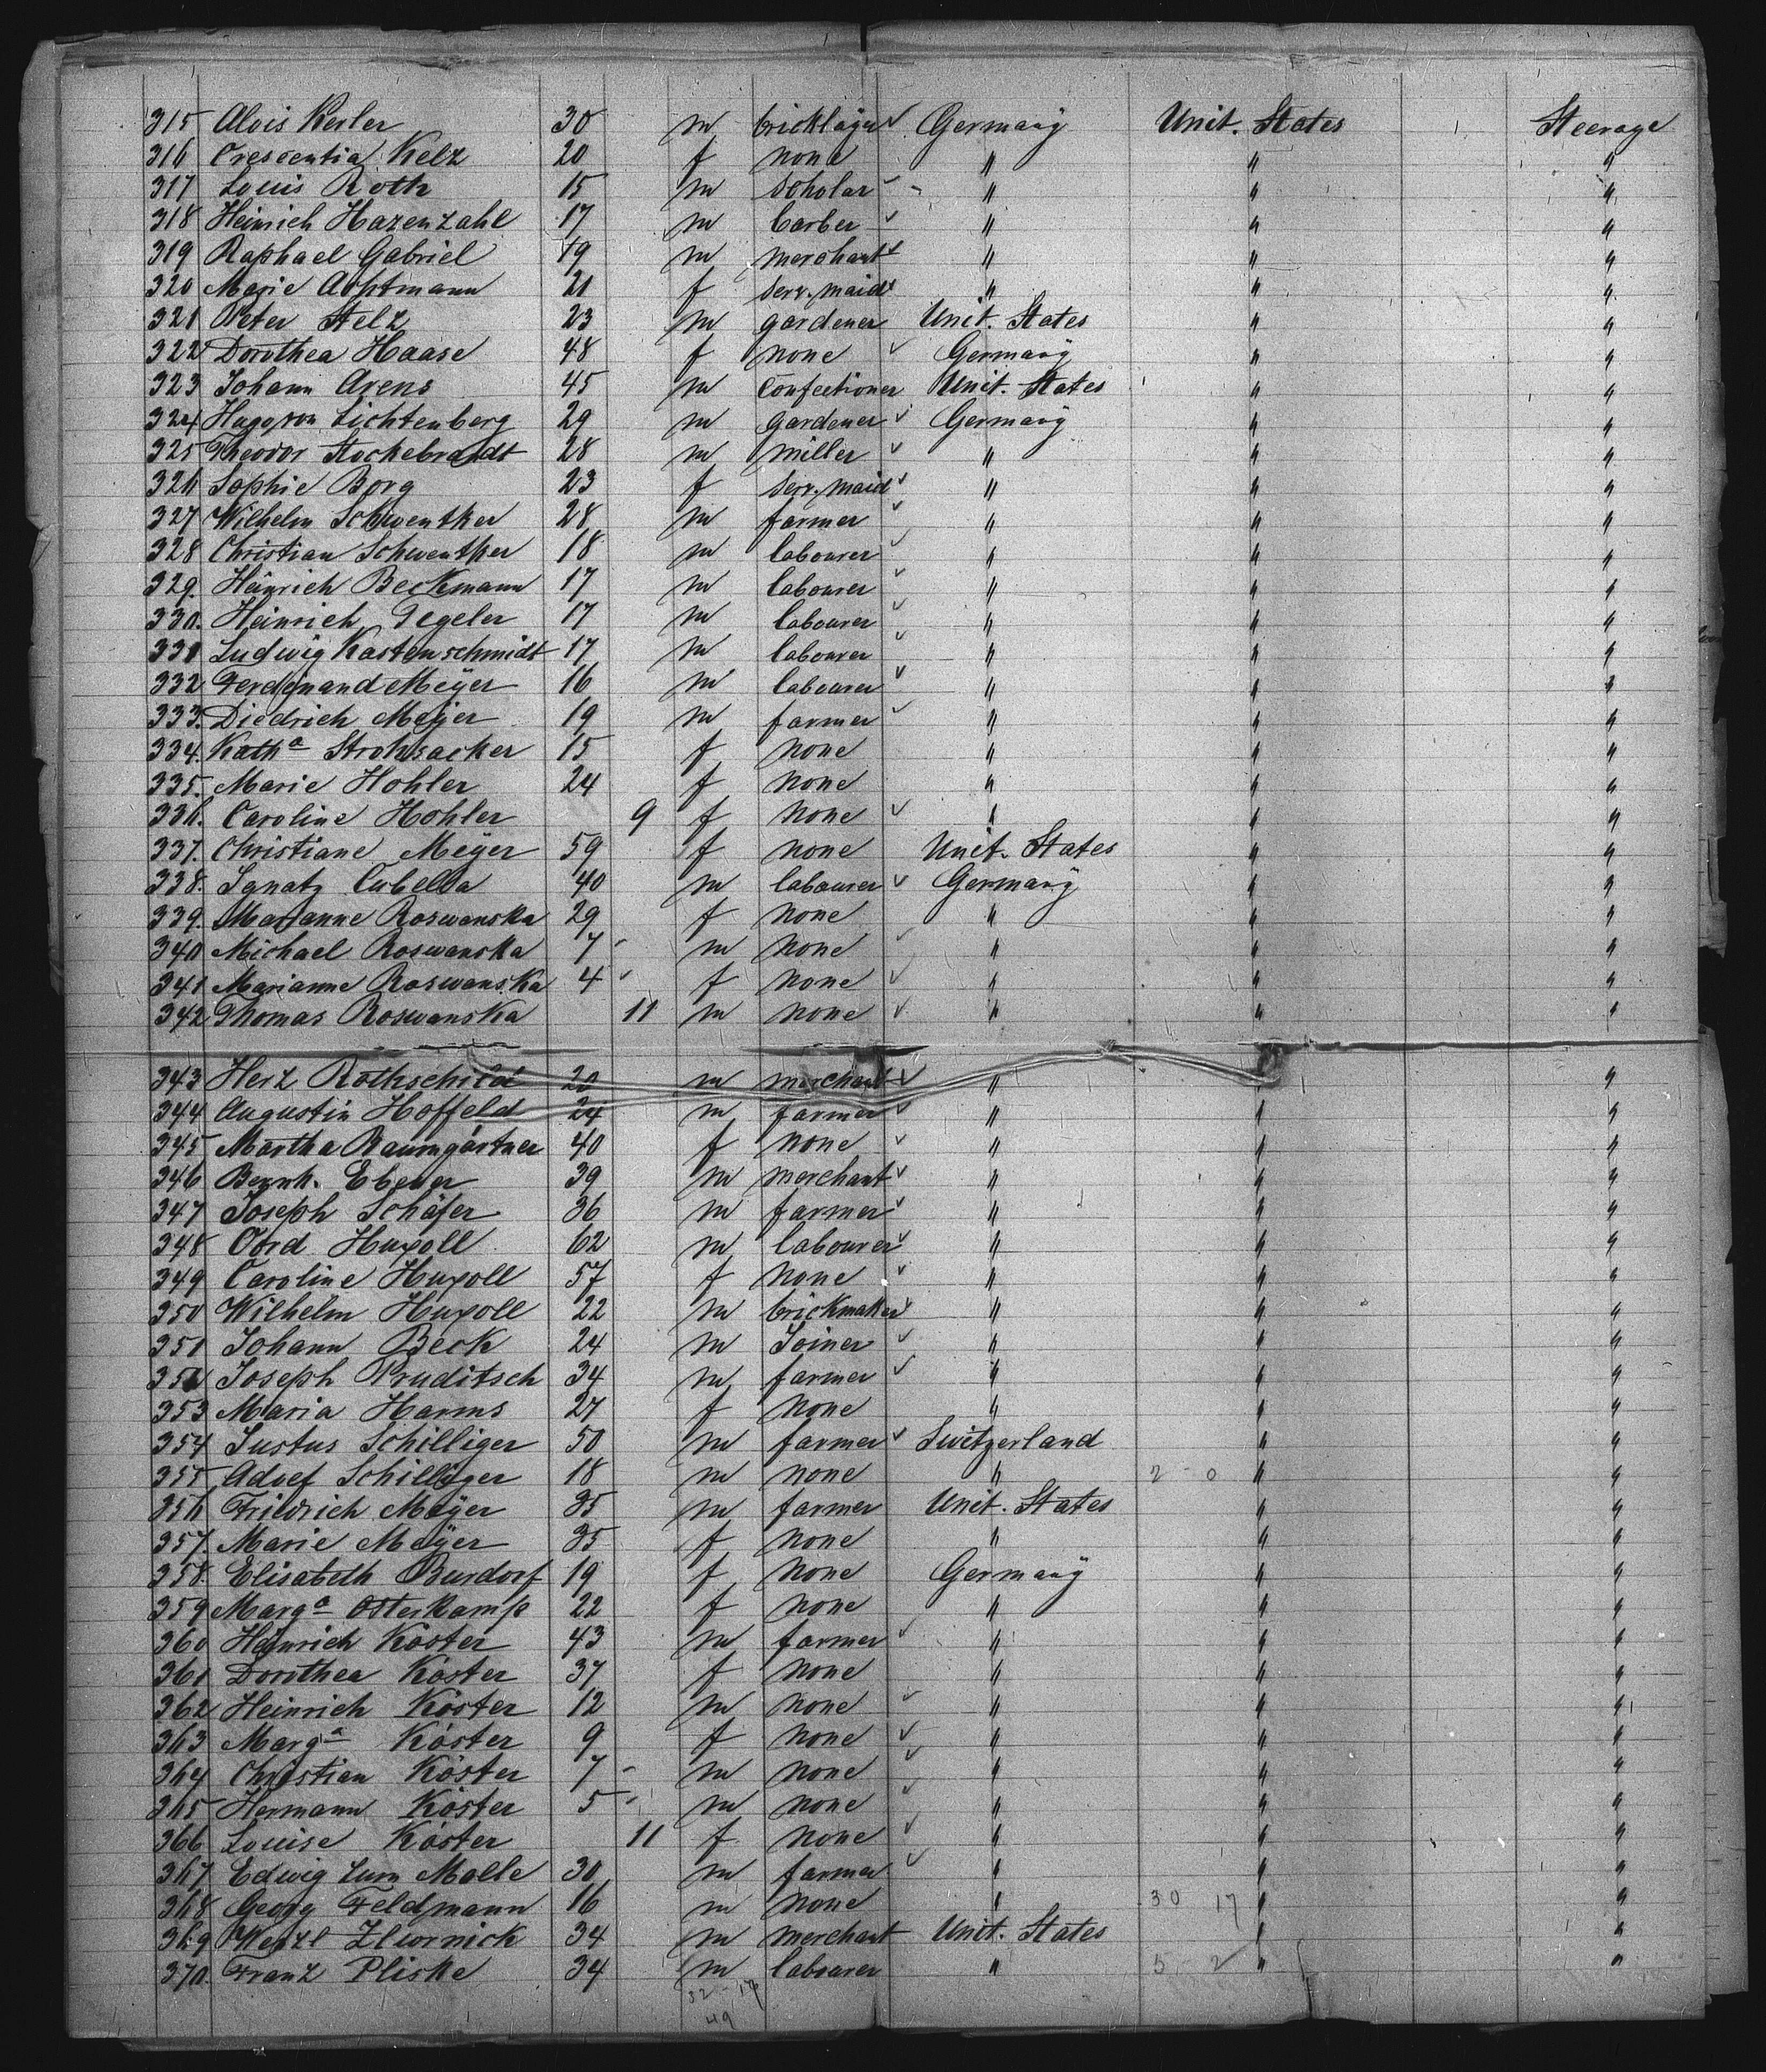 315 Alois Kerler 30 m bricklayer Germany Unit. States Steerage
316 Crescentia Kelz 20 f none " " "
317 Louis Roth 15 m scholar " " "
318 Heinrich Hazenzahl 17 m barber " " "
319 Raphael Gabriel 19 m merchant " " "
320 Marie 21 f serv. maid " " "
321 Peter Stelz 23 m gardener Unit. States " "
322 Dorothea Haase 48 f none Germany " "
323 Johann Arens 45 m Confectioner Unit. States " "
324 Hugo von Lichtenberg 29 m gardener Germany " "
325 Theodor Stockebrandt 28 m miller " " "
326 Sophie Borg 23 f serv. maid " " "
327 Wilhelm Schwentker 28 m farmer " " "
328 Christian Schwentker 18 m labourer " " "
329. Heinrich Beckmann 17 m labourer " " "
330. Heinrich Tegeler 17 m labourer " " "
331 Ludwig Kastenschmidt 17 m labourer " " "
332 Ferdinand Meÿer 16 m labourer " " "
333. Diedrich Meÿer 19 m farmer " " "
334. Kath.a Strohsacker 15 f none " " "
335. Marie Hohler 24 f none " " "
336. Caroline Hohler 9 f none " " "
337. Christiane Meÿer 59 f none Unit. States " "
338. Ignatz Cubella 40 m labourer Germany " "
339. Marianne Roswanska 29 f none " " "
340 Michael Roswanska 7 m none " " "
341 Marianne Roswanska 4 f none " " "
342 Thomas Roswanska 11 m none " " "
343 Herz Rothschild 20 m merchant " "
344 Augustin Hoffeld 24 m farmer " " "
345 Martha Baumgärtner 40 f none " " "
346 Bernh. Ebener 39 m merchant " " "
347 Joseph Schäfer 36 m farmer " " "
348 Cord Huxoll 62 m labourer " " "
349 Caroline Huxoll 57 f none " " "
350 Wilhelm Huxoll 22 m brickmaker " " "
351 Johann Beck 24 m Joiner " " "
352 Joseph Pruditsch 34 m farmer " " "
353 Maria Harms 27 f none " " "
354 Justus Schilliger 50 m farmer Switzerland " "
355 Adolf Schilliger 18 m none " 2 - 0 " "
356 Friedrich Meÿer 35 m farmer Unit. States " "
357. Marie Meÿer 35 f none " " "
358. Elisabeth Burdorf 19 f none Germany " "
359 Marg.a Osterkamp 22 f none " " "
360 Heinrich Köster 43 m farmer " " "
361 Dorothea Köster 37 f none " " "
362 Heinrich Köster 12 m none " " "
363 Marg.a Köster 9 f none " " "
364 Christian Köster 7 m none " " "
365 Hermann Köster 5 m none " " "
366 Louise Köster 11 f none " " "
367 Edwig zum Malle 30 m farmer " " "
368 Georg Feldmann 16 m none " 30 17 " "
369 Wenzl 34 m merchant Unit. States " "
370. Franz Pliske 34 m labourer " 5 - 2 " "
32 - 17
49